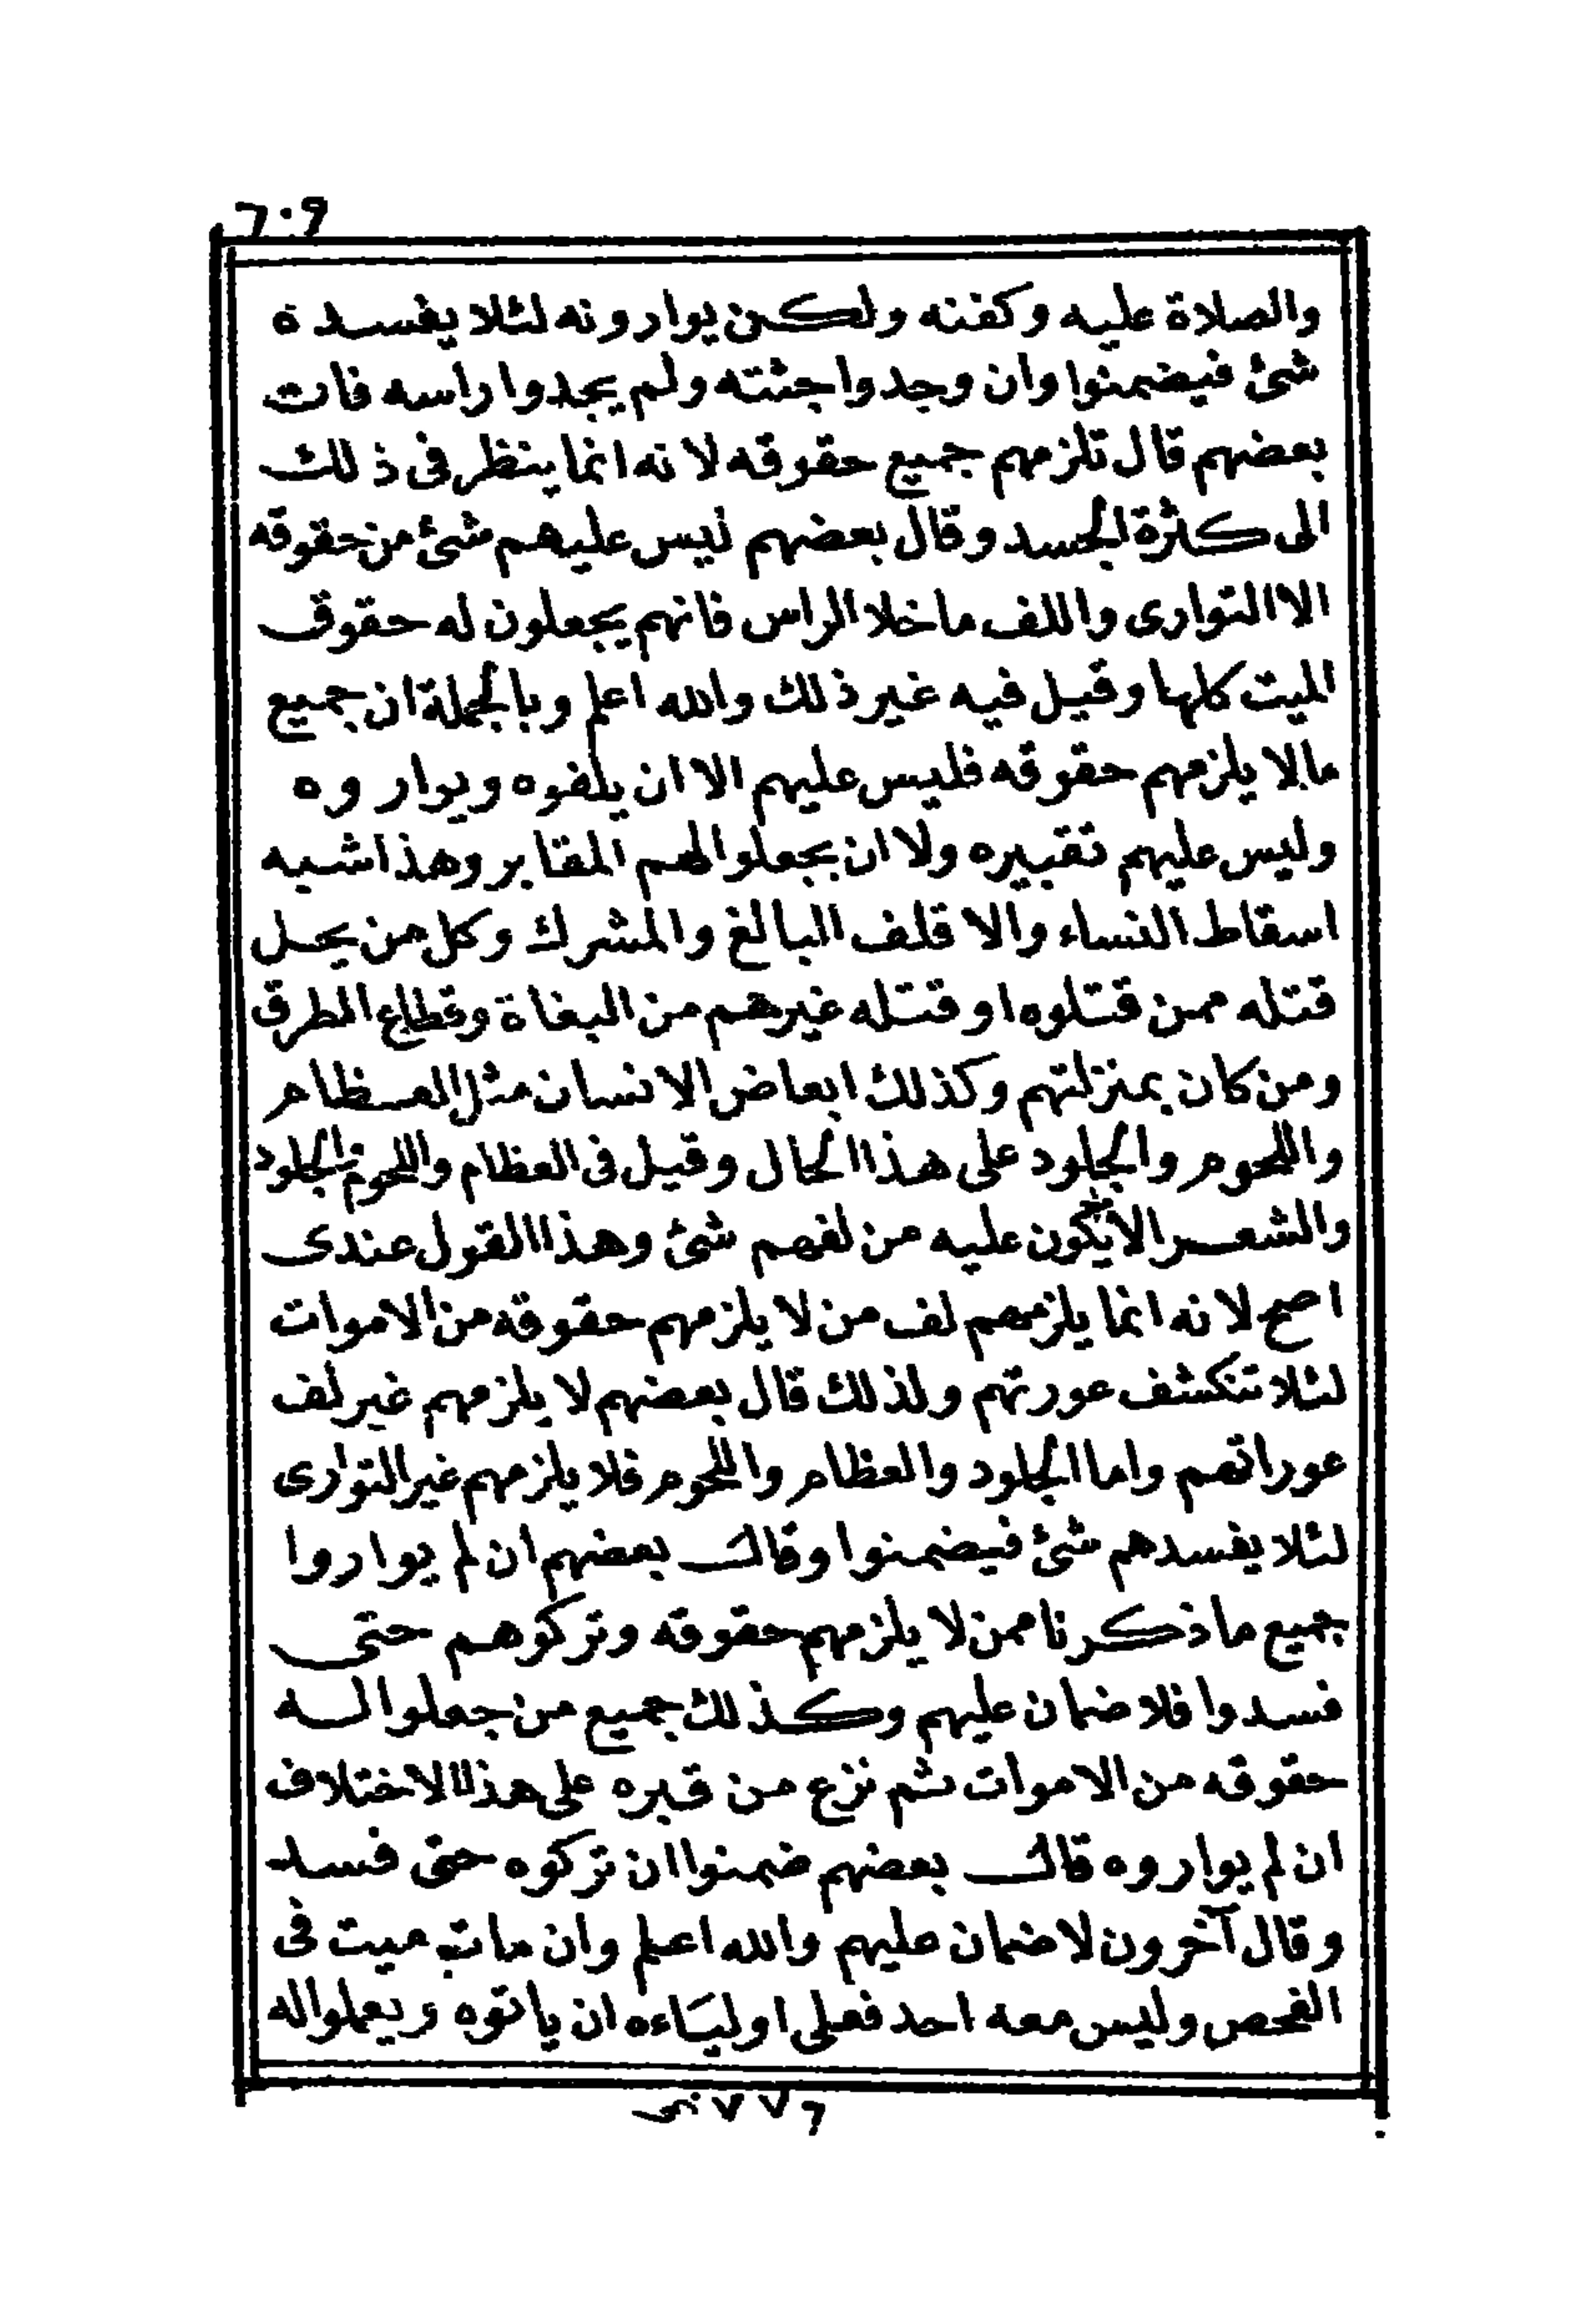 ٦٠٩
والصلاة عليه وكفنه ولكن يوارونه لئلا يفسده
شئ فيضمنوا وان وجدوا جثته ولم يجدوا راسه فان
بعضهم قال تلزمهم جميع حقوقه لانه انما ينظر فى ذلك
الى كثرة الجسد وقال بعضهم ليس عليهم شئ من حقوقه
الا التوارى واللف ما خلا الراس فانهم يجعلون له حقوق
الميت كلها وقيل فيه غير ذلك والله اعلم وبالجملة ان جميع
ما لا يلزمهم حقوقه فليس عليهم الا ان يلفوه ويواروه
وليس عليهم تقبيره ولا ان يجعلوا لهم المقابر وهذا شبه
اسقاط النساء والاقلف البالغ والمشرك وكل من يحل
قتله ممن قتلوه او قتله غيرهم من البغاة وقطاع الطرق
ومن كان بمنزلتهم وكذلك ابعاض الانسان مثل العظام
واللحوم والجلود على هذا الحال وقيل فى العظام واللحوم والجلود
والشعر لا يكون عليه من لفهم شئ وهذا القول عندى
اصح لانه انما يلزمهم لف من لا يلزمهم حقوقه من الاموات
لئلا تنكشف عورتهم ولذلك قال بعضهم لا يلزمهم غير لف
عوراتهم واما الجلود والعظام واللحوم فلا يلزمهم غير التوارى
لئلا يفسدهم شئ فيضمنوا وقال بعضهم ان لم يواروا
جميع ما ذكرنا ممن لا يلزمهم حقوقه وتركوهم حتى
فسدوا فلا ضمان عليهم وكذلك جميع من جعلوا له
حقوقه من الاموات ثم نزع من قبره على هذا الاختلاف
ان لم يواروه قال بعضهم ضمنوا ان تركوه حتى فسد
وقال آخرون لا ضمان عليهم والله اعلم وان مات ميت فى
الفحص وليس معه احد فعلى اوليَاءه ان ياتوه ويعملوا له